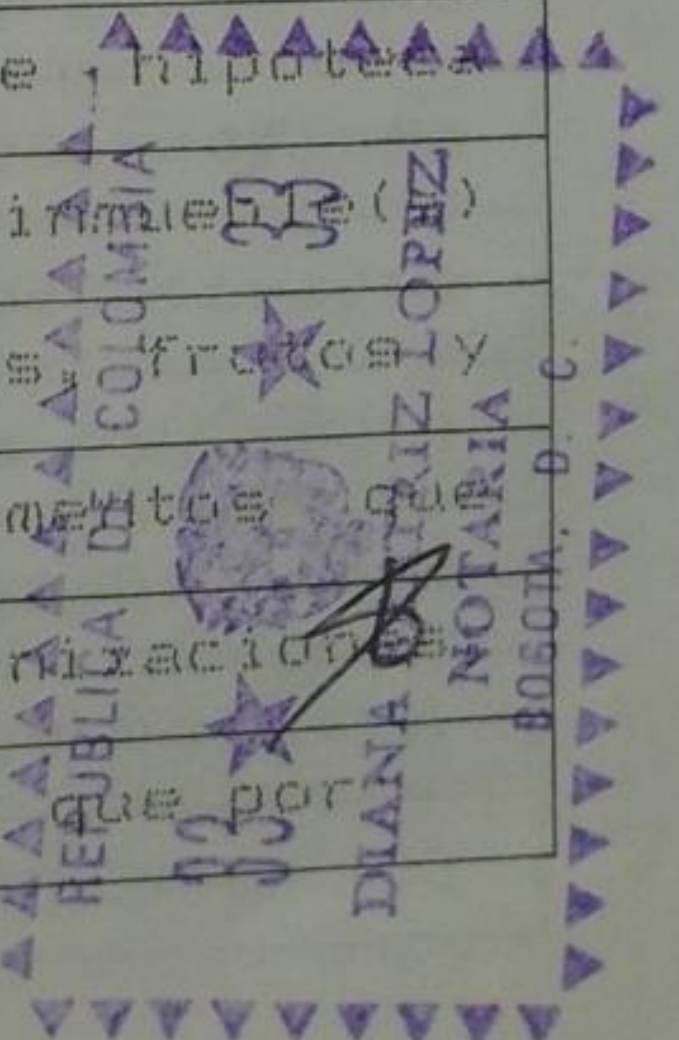 e hipoteca
inmueble( )
s, frutos y
mentos que
nizaciones
que por
REPUBLICA DE COLOMBIA
33
33
DIANA BEATRIZ LOPEZ
NOTARIA
BOGOTA, D. C.